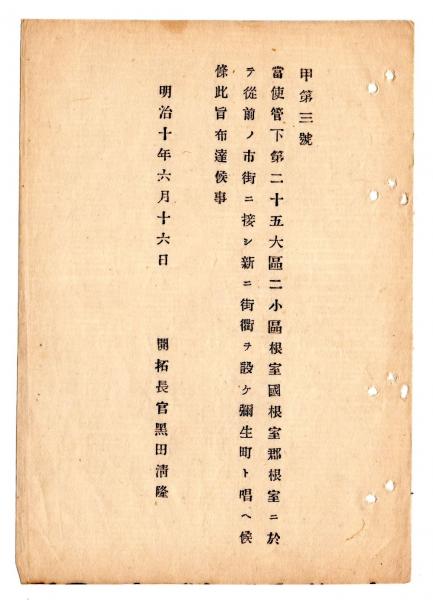 甲第三號
當使管下第二十五大區二小區根室國根室郡根室ニ於
テ從前ノ市街ニ接シ新ニ街衢ヲ設ケ彌生町ト唱ヘ候
條此旨布達候事
明治十年六月十六日
開拓長官黑田清隆